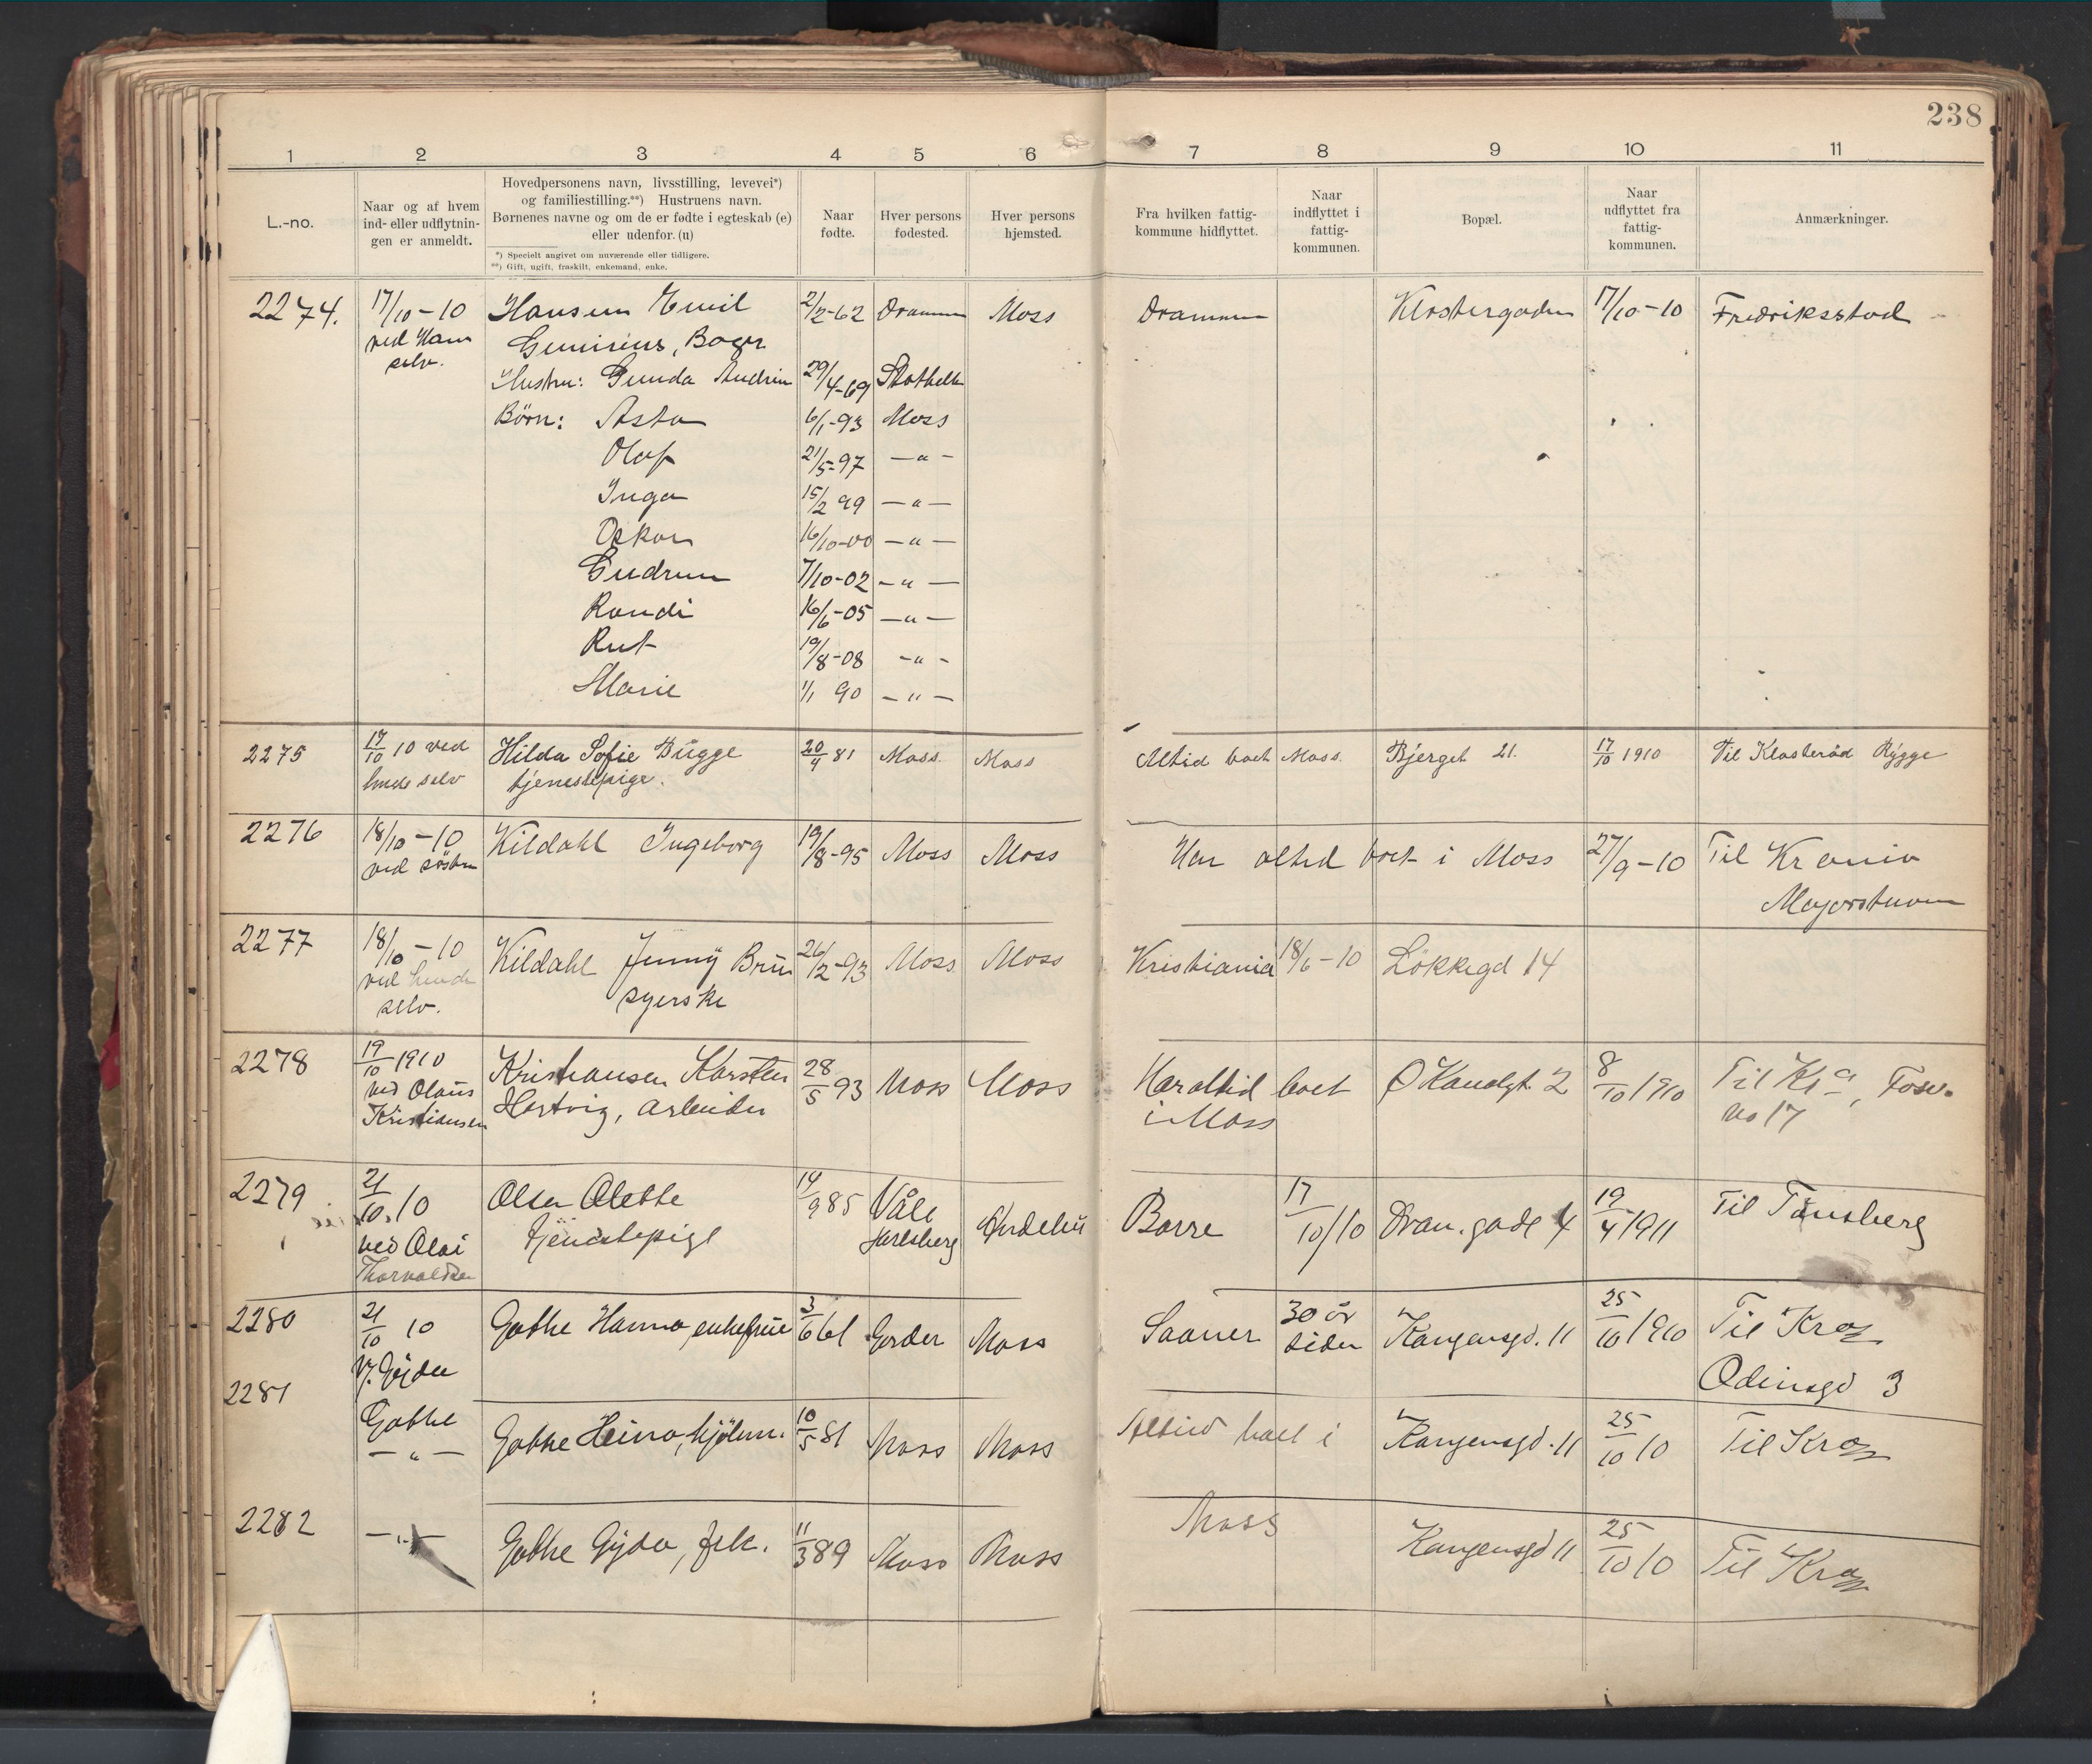 238
1 2 3 4 5 6 7 8 9 10 11
L.-no.
Naar og af hvem
ind- eller udflytnin-
gen er anmeldt.
Hovedpersonens navn, livsstilling, levevei*)
og familiestilling.**) Hustruens navn.
Børnenes navne og om de er fødte i egteskab (e)
eller udenfor. (u)
*) Specielt angivet om nuværende eller tidligere.
**) Gift, ugift, fraskilt, enkemand, enke.
Naar
fødte.
Hver persons
fødested.
Hver persons
hjemsted.
Fra hvilken fattig-
kommune hidflyttet.
Naar
indflyttet i
fattig-
kommunen.
Bopæl.
Naar
udflyttet fra
fattig-
kommunen.
Anmærkninger.
2274. 17/10-10 Hansen Emil 2/2-62 Drammen Moss Drammen Klostergaden 17/10-10 Fredriksstad
ved Ham Bager
selv.
Hustru: Gunda 29/4-69
Børn: Asta 6/1-93 Moss
Olaf 21/5-97 —"—
Inga 15/2 99 —"—
Oskar 16/10-00 —"—
Gudrun 7/10-02 —"—
Randi 16/6-05 —"—
Rut 19/8-08 —"—
Marie 1/1 90 —"—
2275 17/10 10 ved Hilda Sofie Bugge 20/4 81 Moss Moss Altid boet Moss. Bjerget 21. 17/10 1910 Til Klosterød Rygge
hende selv tjenestepige.
2276 18/10-10 Kildahl Ingeborg 19/8-95 Moss Moss Har altid boet i Moss 27/9-10 Til Krania
ved søster Majorstuven
2277 18/10-10 Kildahl Jenny Brun 26/12-93 Moss Moss Kristiania 18/6-10 Løkkegd 14
ved hende syerske
selv.
2278 19/10 1910 Kristiansen Karsten 28/5 93 Moss Moss Har altid boet Ø Kanalgt. 2 8/10 1910 Til Kra, Fosv.
ved Olaus Hartvig, arbeider i Moss no 17
Kristiansen
2279 21/10 10 Olsen Olette 14/9 85 Våle Borre 17/10/10 Dron. gade 4 19/4 1911 Til Tønsberg
ved Olai Tjenestepige Jarlsberg
Thorvaldsen
2280 21/10 10 Gothe Hanna, enkefrue 3/6 61 Moss Saaner 30 år Kongensgd. 11 25/10 1910 Til Kra
v. Gyda siden Odinsgd 3
2281 Gothe
—"— Gothe Heina, 10/5 81 Moss Moss Altid boet i Kongensgd. 11 25/10 10 Til Kra
2282 —"— Gothe Gyda, frk. 11/3 89 Moss Moss Moss Kongensgd 11 25/10 10 Til Kra